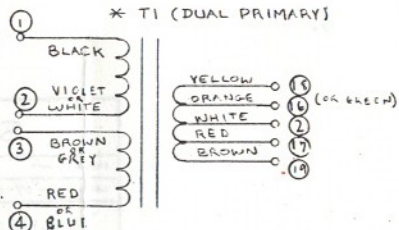 * T1 (DUAL PRIMARY)
1
BLACK
2 VIOLET
OR
WHITE
3 BROWN
OR
GREY
RED
OR
4 BLUE
YELLOW 15
ORANGE 16 (OR GREEN)
WHITE 2
RED 17
BROWN 19